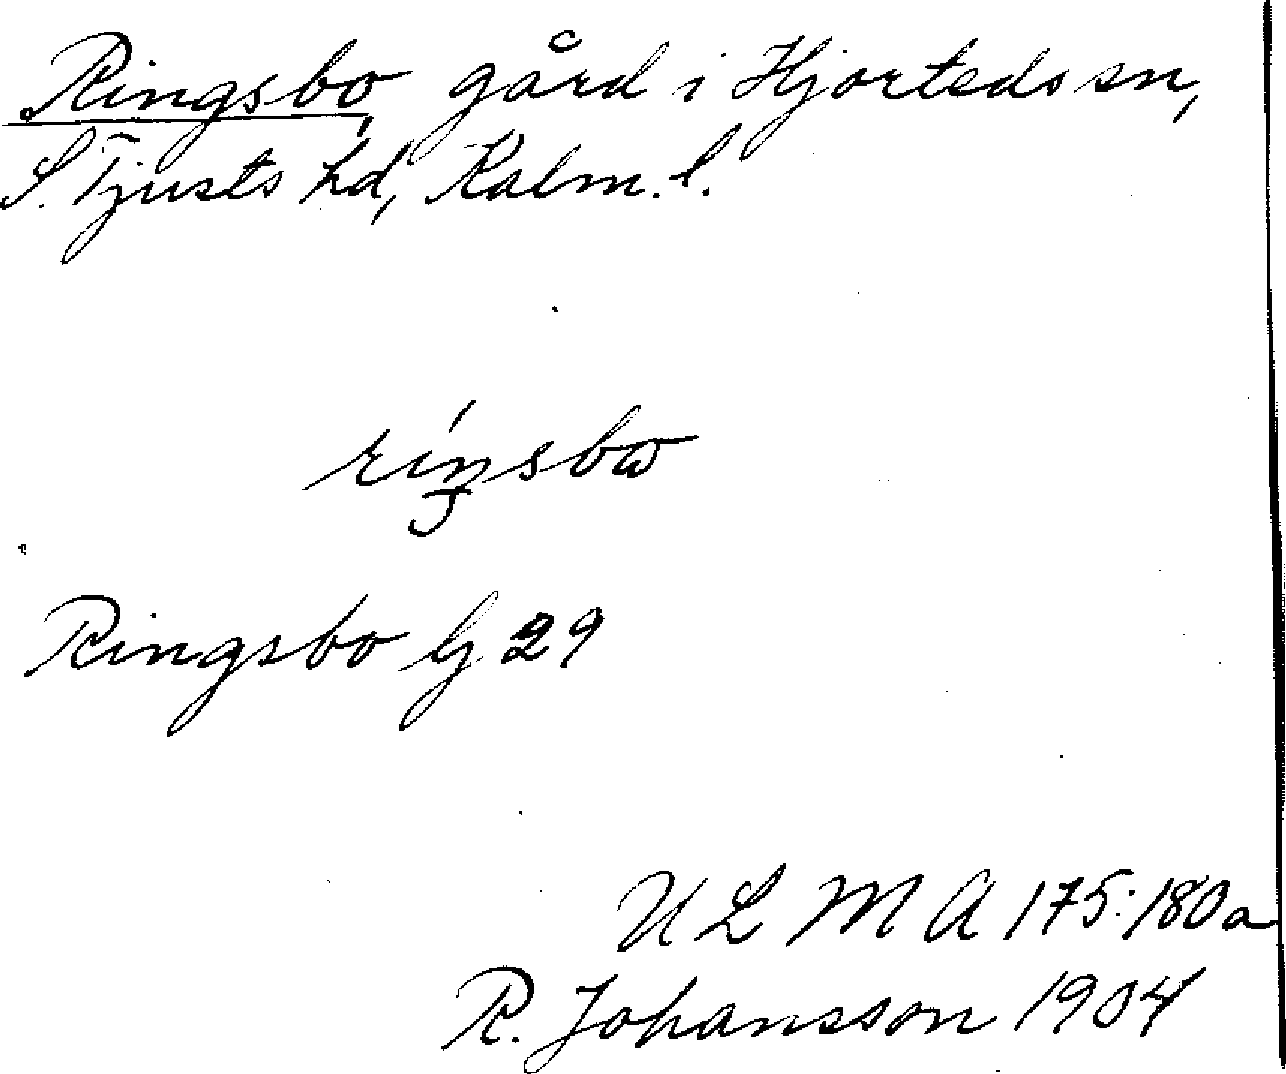 Ringsbo, gård i Hjorteds sn,
S. Tjusts hd, Kalm. l.
Ringsbo G 29
ULMA 175:180a
R. Johansson 1904